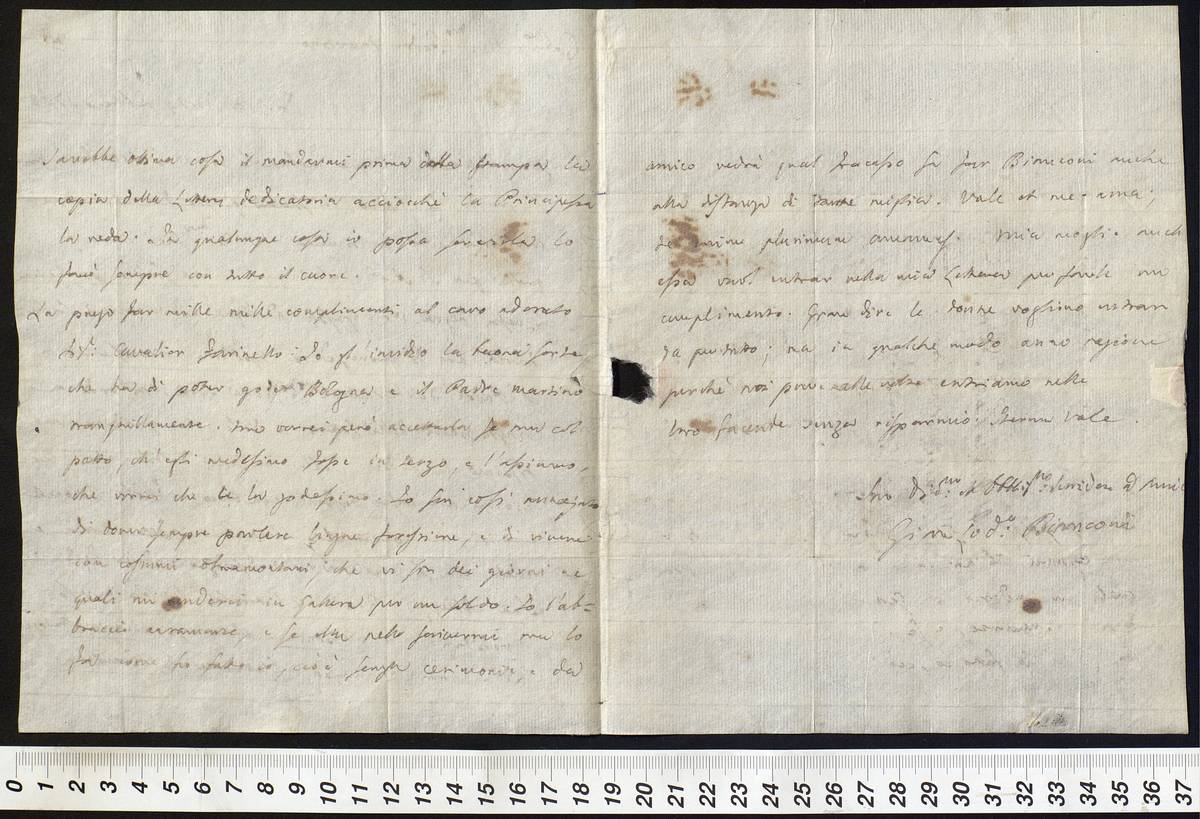 Sarebbe ottima cosa il mandarmi prima della stampa la
copia della Lettera dedicatoria acciocchè la Principessa
la veda. In qualunque cosa io possa servirla lo
farò sempre con tutto il cuore.
La prego far mille mille complimenti al caro adorato
Sig.r Cavalier Farinello. Io gl'invidio la buona sorte
che ha di poter goder Bologna e il Padre Martino
tranquillamente. Ma vorrei però accettarla se non col
patto, ch'egli medesimo fosse in terzo, e l'assicuro,
che vorrei che ce la godessimo. Io son così
di dover sempre parlare lingue forestiere, e di vivere
con costumi oltramontani, che vi son dei giorni ne
quali mi venderei in galera per un soldo. Io l'ab=
braccio caramente, e se ella nello scrivermi non lo
fa come ho fatto io, cioè senza cerimonie, e da
amico vedrà qual fracasso sa far Bianconi anche
alla distanza di tante miglia. Vale et me ama;
te enim plurimum amamus. Mia moglie anch
essa vuol entrar nella mia Lettera per farle un
complimento. Gran dire le donne vogliono entrar
da per tutto; ma in qualche modo anno ragione
perchè noi pure alle volte entriamo nelle
loro facende senza risparmio. Iterum Vale.
Suo Div.mo et Obblig.mo Servidor ed Amic
Giov Lod.o Bianconi